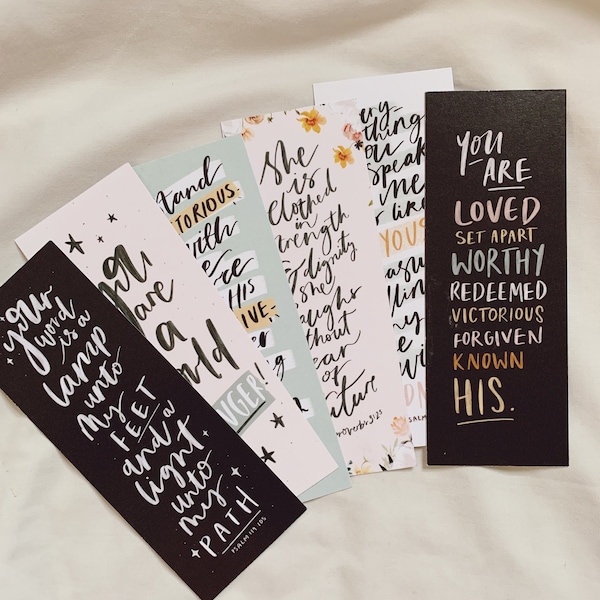 Your
word
is a
lamp
unto
my
FEET
and a
light
unto
my
PATH
PSALM 119:105
are
a
NGER!
tand
TORIOUS
with
HIS
IVE,
she
is
clothed
in
strength
& dignity
she
laughs
without
fear
of
future
Proverbs 31:25
thing
you
speak
me
like
my
PSALM
YOU
ARE
LOVED
SET APART
WORTHY
REDEEMED
VICTORIOUS
FORGIVEN
KNOWN
HIS.